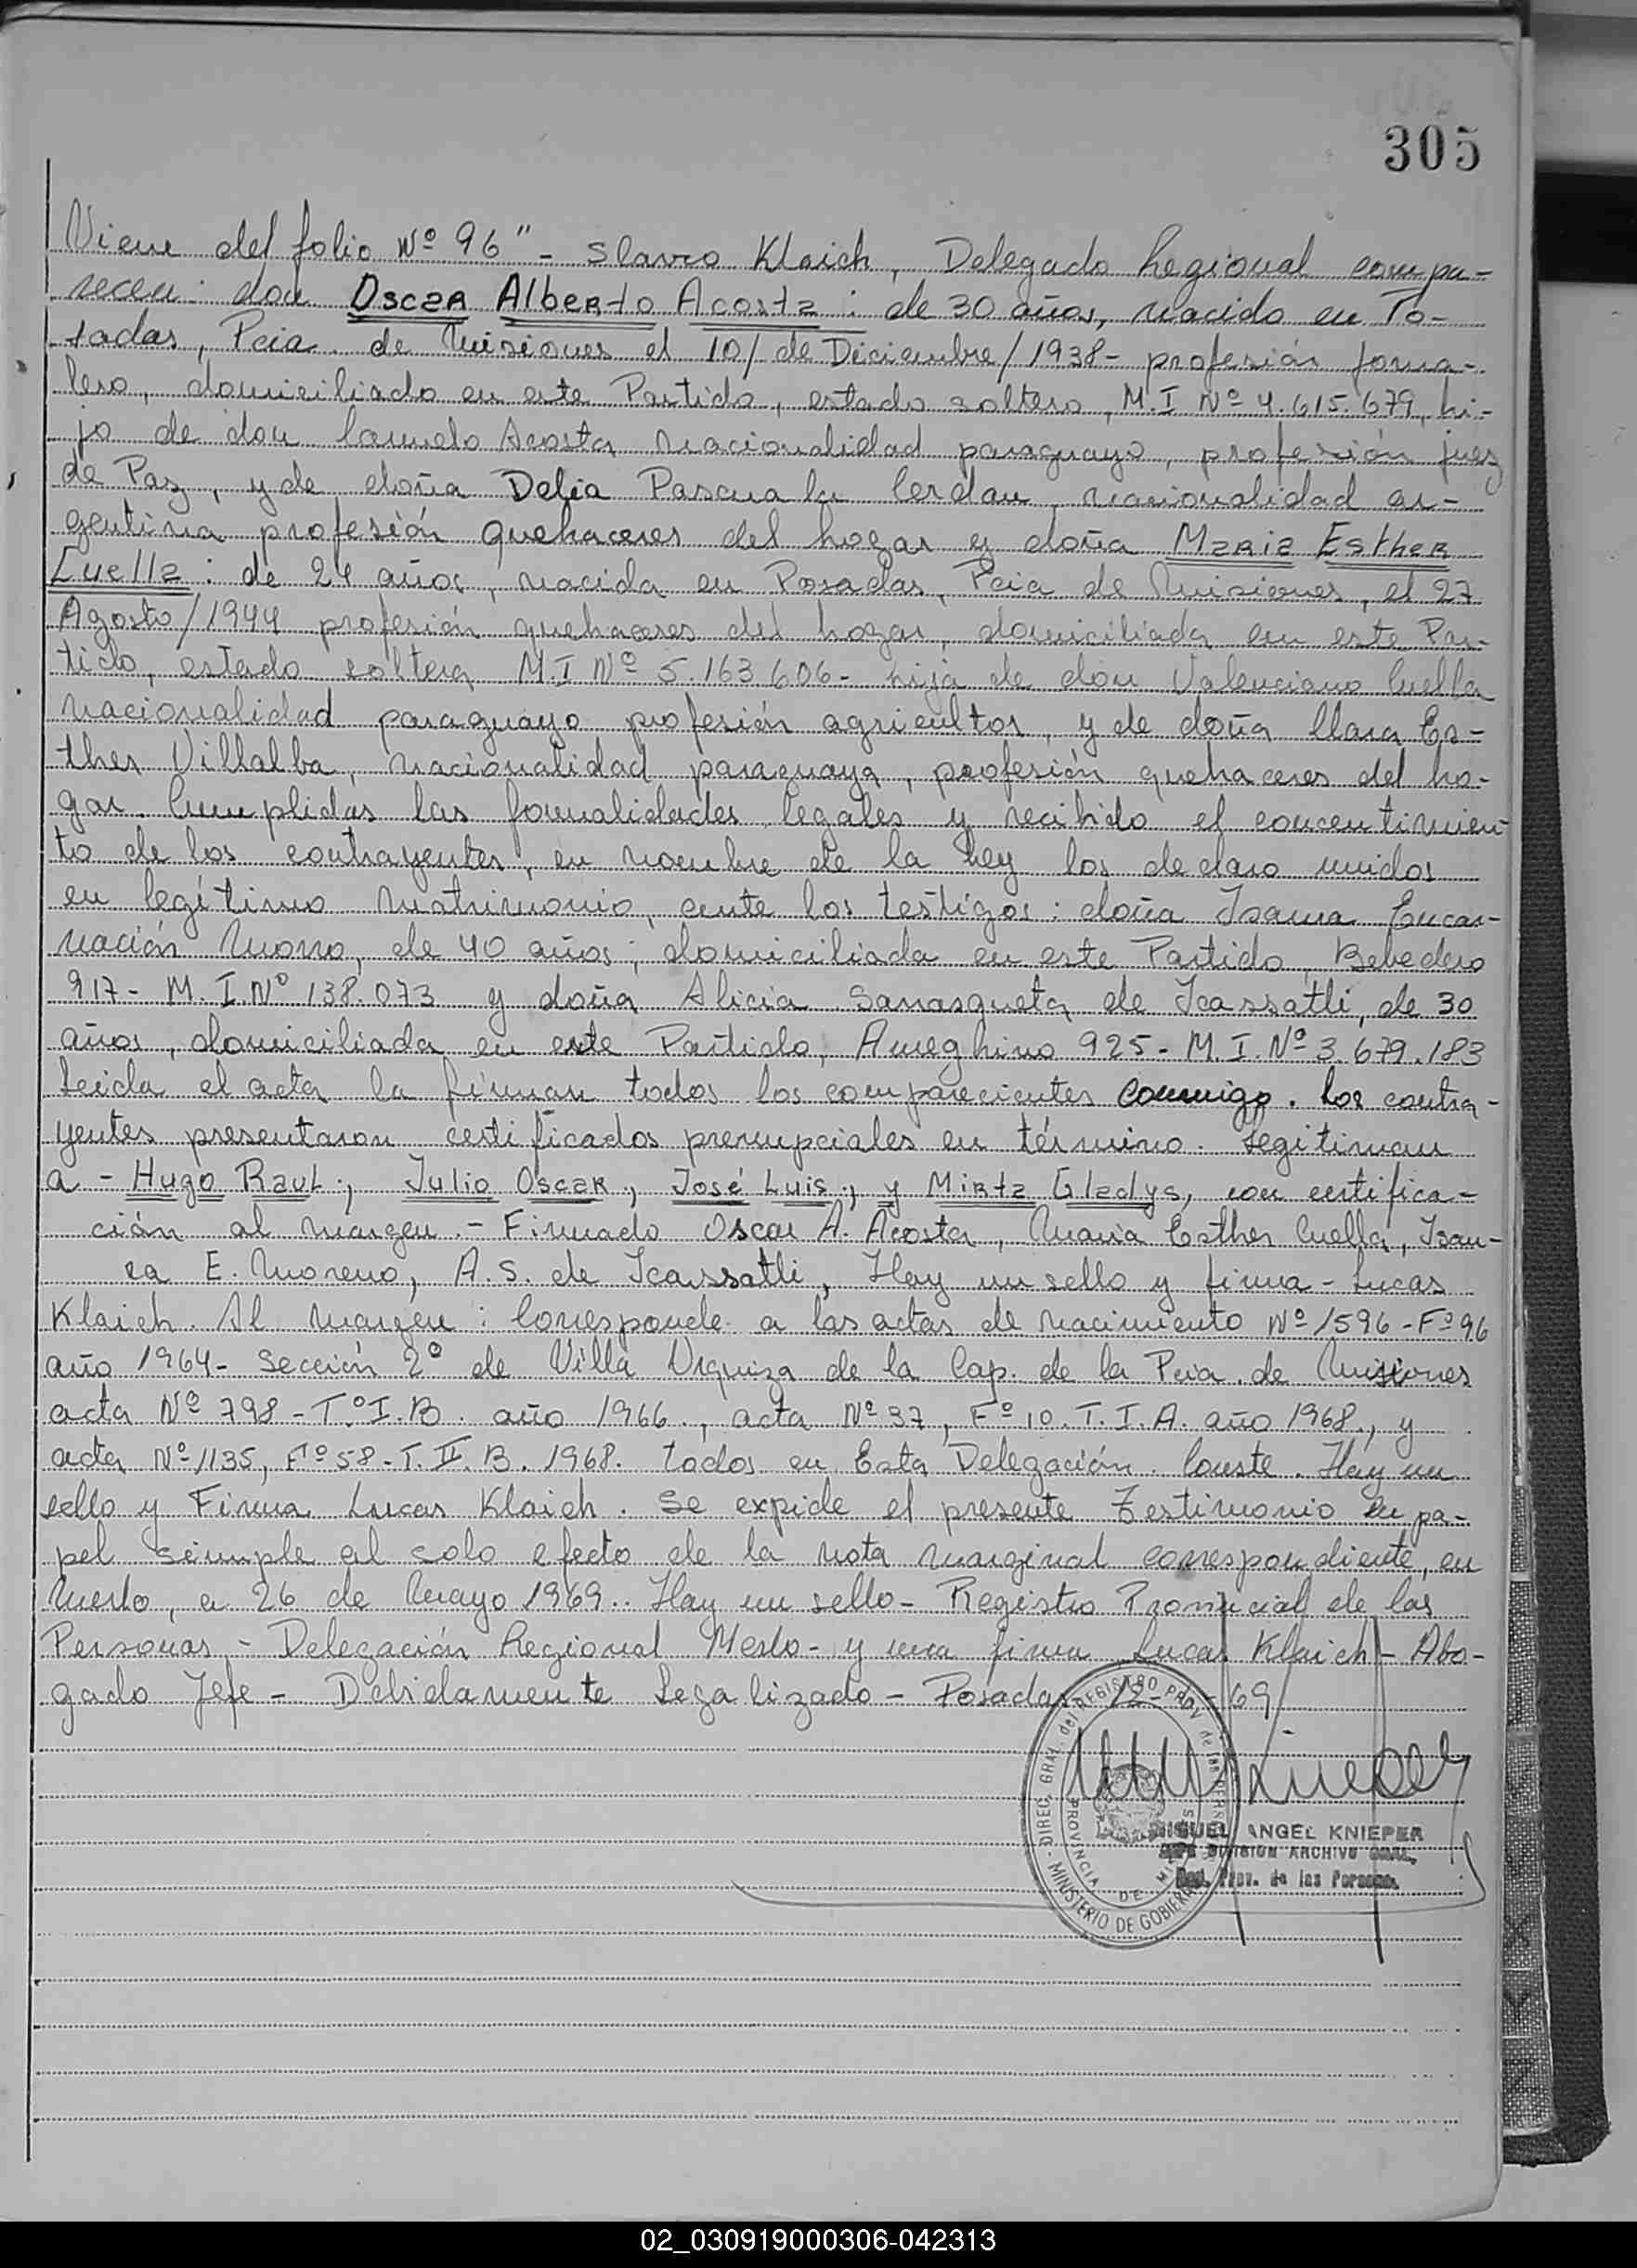 305
Viene del folio Nº 96" - Slavco Klaich, Delegado Regional compa-
recen: don Oscar Alberto Acosta: de 30 años, nacido en Po-
sadas, Pcia. de Misiones el 10/de Diciembre/1938- profesión jorna-
lero, domiciliado en este Partido, estado soltero, M.I Nº 4.615.679, hi-
jo de don Camelo Acosta nacionalidad paraguayo, profesión juez
de Paz, y de doña Delia Pascuala Cerdan, nacionalidad ar-
gentina profesión quehaceres del hogar y doña Maria Esther
Cuella: de 24 años, nacida en Posadas, Pcia de Misiones, el 27
Agosto/1944 profesión quehaceres del hogar, domiciliada en este Par-
tido, estado soltera M.I Nº 5.163.606- hija de don Valenciano Cuella
nacionalidad paraguayo profesión agricultor, y de doña Clara Es-
ther Villalba, nacionalidad paraguaya, profesión quehaceres del ho-
gar. Cumplidas las formalidades legales y recibido el concentimien-
to de los contrayentes, en nombre de la Ley los declaro unidos
en legítimo matrimonio, ante los testigos: doña Isaura Encar-
nación Moreno, de 40 años; domiciliada en este Partido, Bebedero
917- M.I.Nº 138.073 y doña Alicia Sarrasqueta de Icassatti, de 30
años, domiciliada en este Partido, Ameghino 925- M.I.Nº 3.679.183
Leida el acta la firman todos los comparecientes conmigo. Los contra-
yentes presentaron certificados prenupciales en término. Legitiman
a - Hugo Raul, Julio Oscar, José Luis, y Mirta Gladys, con certifica-
ción al margen.- Firmado Oscar A. Acosta, Maria Esther Cuella, Isau-
ra E. Moreno, A.S. de Icassatti, Hay un sello y firma - Lucas
Klaich. Al margen: Corresponde a las actas de nacimiento Nº 1596-Fº96
año 1964- Sección 2º de Villa Urquiza de la Cap. de la Pcia. de Misiones
acta Nº 798-Tº I.B. año 1966., acta Nº 37, Fº 10. T.I.A. año 1968., y
acta Nº 1135, Fº 58-T.II.B. 1968. todos en Esta Delegación. Conste. Hay un
sello y Firma Lucas Klaich. Se expide el presente Testimonio en pa-
pel simple al solo efecto de la nota marginal correspondiente, en
Merlo, a 26 de Mayo 1969.. Hay un sello- Registro Provincial de las
Personas, - Delegación Regional Merlo- y una firma Lucas Klaich- Abo-
gado Jefe - Debidamente Legalizado - Posadas 12- 69
DIREC. GRAL. del REGISTRO PROV. de las PERSONAS
MINISTERIO DE GOBIERNO
PROVINCIA DE MISIONES
MIGUEL ANGEL KNIEPER
JEFE DIVISION ARCHIVO GRAL.
Reg. Prov. de las Personas
02_030919000306-042313